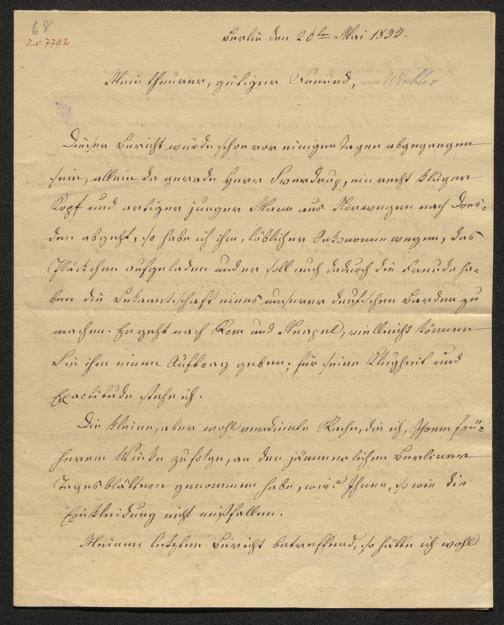 68
I.N. 7702
Berlin den 26ten Mai 1833.
Mein theurer, gütiger Freund, an Winkler
Dieser Bericht würde schon vor einigen Tagen abgegangen
sein, allein da gerade Herr Sverdrup, ein recht kluger
Kopf und artiger junger Mann aus Norwegen nach Dres-
den abgeht, so habe ich ihm, löblicher Oekonomie wegen, das
Päckchen aufgeladen und er soll auch dadurch die Freude ha-
ben die Bekanntschaft eines unserer deutschen Barden zu
machen. Er geht nach Rom und Neapel, vielleicht können
Sie ihm einen Auftrag geben; für seine Klugheit und
Exactitude stehe ich.
Die kleine, aber wohlverdiente Rache, die ich, Ihrem frü-
herem Winke zufolge, an den jämmerlichen Berliner
Tagesblättern genommen habe, wird Ihnen, so wie die
Einkleidung nicht mißfallen.
Meinen letzten Bericht betreffend, so hätte ich wohl